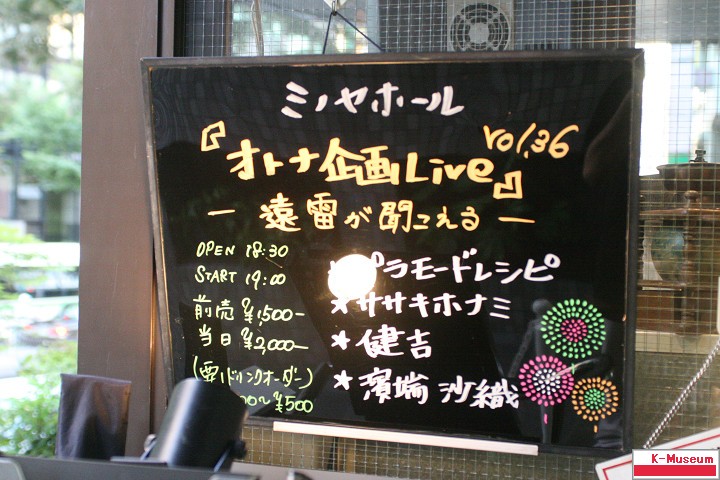 ミノヤホール
『オトナ企画Live』 vol.36
― 遠雷が聞こえる ―
OPEN 18:30
START 19:00
前売 ¥1,500-
当日 ¥2,000-
(要1ドリンクオーダー)
¥500
プラモードレシピ
★ササキホナミ
★健吉
★濱端 沙織
K-Museum